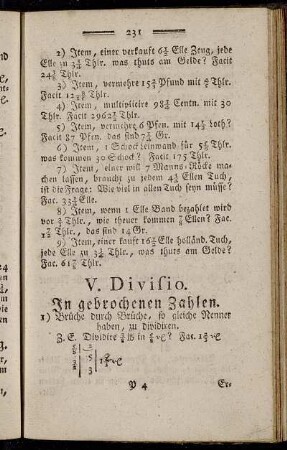 231
2) Item, einer verkauft 6½ Elle Zeug, jede
Elle zu 3¾ Thlr. was thuts am Gelde? Facit
24⅜ Thlr.
3) Item, vermehre 15⅔ Pfund mit Thlr.
Facit Thlr.
4) Item, multiplicire 98¾ Centn. mit 30
Thlr. Facit 2962½ Thlr.
5) Item, vermehre 6 Pfen. mit 14½ loth?
Facit 87 Pfen. das sind 7¼ Gr.
6) Item, 1 Schock leinwand für 5⅚ Thlr.
was kommen 30 Schock? Facit 175 Thlr.
7) Item, einer will 7 Manns-Röcke ma-
chen lassen, braucht zu jedem 4¾ Ellen Tuch,
ist die Frage: Wie viel in allen Tuch seyn müsse?
Fac. 33¼ Elle.
8) Item, wenn 1 Elle Band bezahlet wird
vor Thlr., wie theuer kommen Ellen? Fac.
Thlr., das sind 14 Gr.
9) Item, einer kauft 16½ Elle holländ. Tuch,
jede Elle zu 3¾ Thlr., was thuts am Gelde?
Fac. 61⅞ Thlr.
V. Divisio.
In gebrochenen Zahlen.
1) Brüche durch Brüche, so gleiche Nenner
haben, zu dividiren.
Z. E. Dividire in Fac.
P 4 Er-